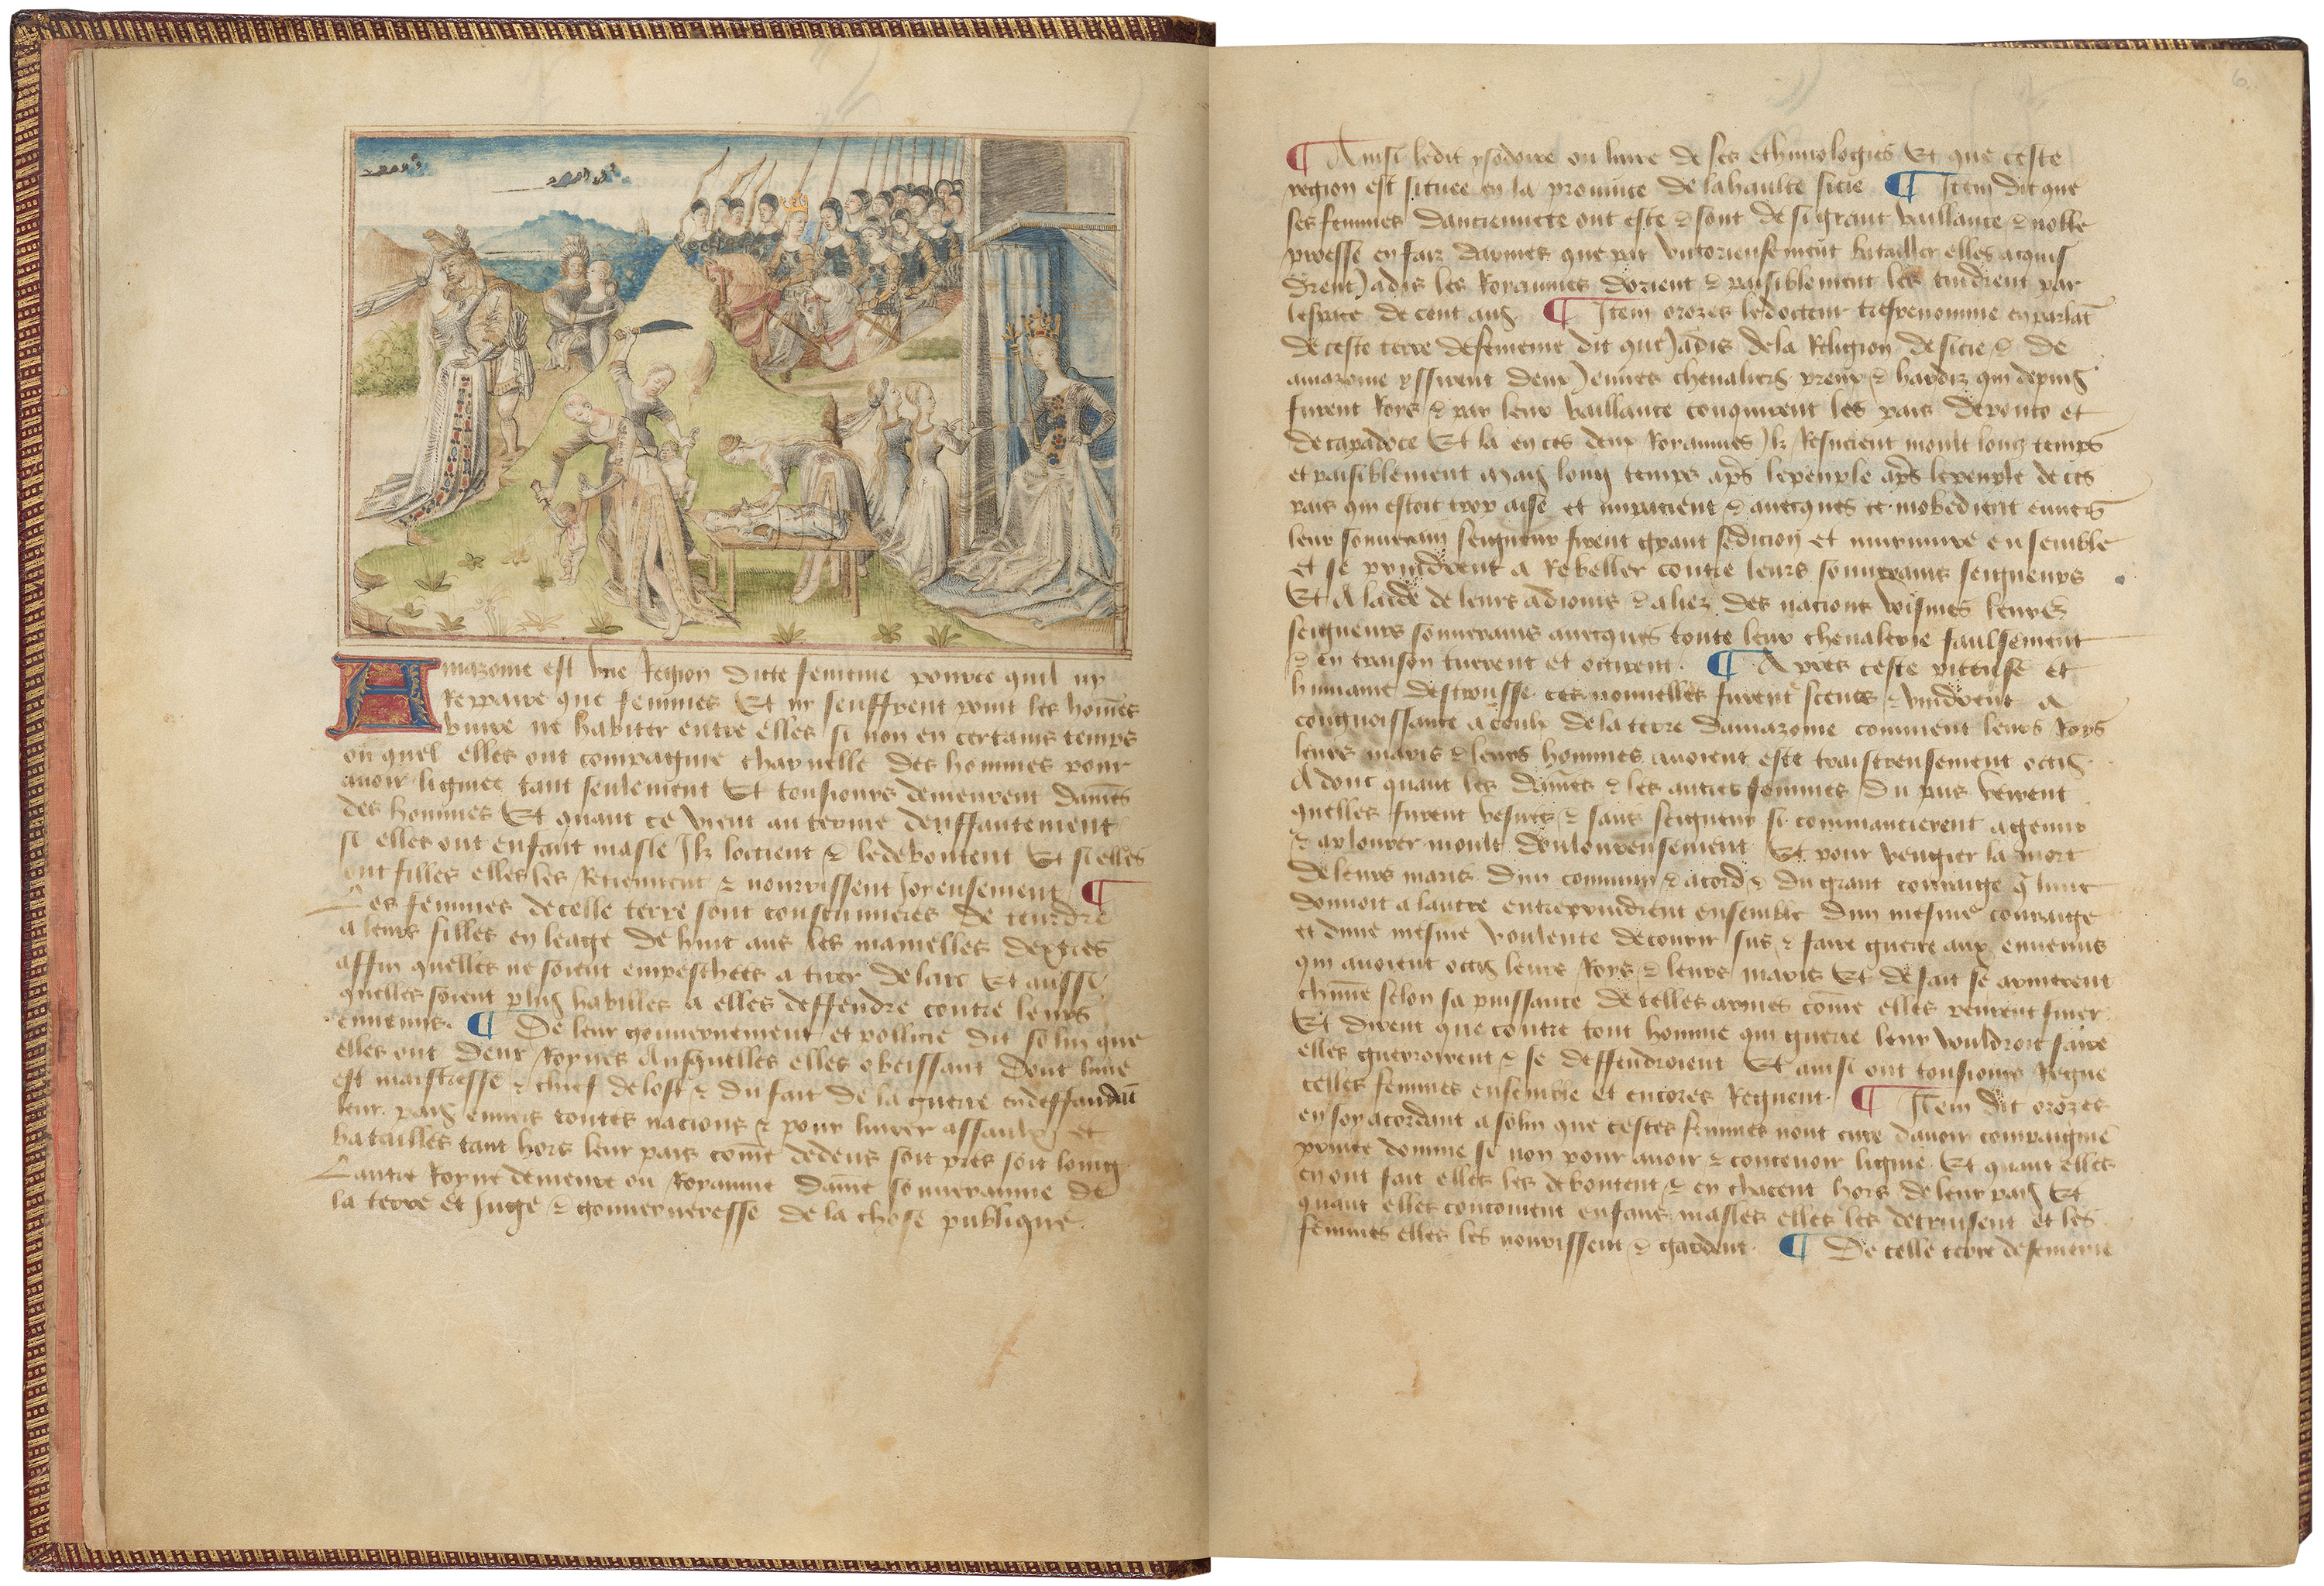 Amazome est vne Region dicte femenie pource quil ny
Reppaire que femmes Et ny seuffrent point les hom̄es
viure ne habiter entre elles si non en certains temps
ou quel elles ont compaignie charnelle des hommes pour
auoir lignee tant seulement Et tousiours demeurent dam̄es
des hommes Et quant ce vient au terme denffantement
si elles ont enfant masle Ilz loccient & le deboutent Et si elles
ont filles elles les Retiennent & nourrissent Joyeusement ¶
Les femmes de celle terre sont coustumieres de teurdre
a leurs filles en leage de huit ans les mamelles dextres
affin quelles ne soient empeschees a tirer de larc Et aussi
quelles soient plus habilles a elles deffendre contre leurs
ennemis. ¶ De leur gouuernement et pollicie dit solin que
elles ont deux Roynes ausquelles elles obeissant dont lune
est maistresse & chief de lost & du fait de la guerre en deffandāt
leur pais enuers toutes nacions & pour liurer assaulx et
batailles tant hors leur pais com̄e dedens soit pres soit loing
Lautre Royne demeure ou Royaume dame souueraine de
la terre et Juge & gouuerneresse de la chose publique.
6
¶ Ainsi ledit ysodore ou liure de ses ethimologies Et que ceste
region est situee en la prouince de la haulte sicie ¶ Item dit que
ses femmes danciennete ont este & sont de si grant vaillance & noble
proesse en faiz darmes que par victorieusement batailler elles acquis
drent Jadis les Royaumes dorient & paisiblement les tindrent par
lespace de cent ans. ¶ Item orozes le docteur tresrenomme en parlāt
de ceste terre de femenie dit que Jadis de la Religion de sicie & de
amazome yssirent deux Jeunes cheualiers preux & hardiz qui depuis
furent Roys & par leur vaillance conquirent les pais de ponto et
de capadoce Et la en ces deux Royaumes Ilz Resnerent moult long temps
et paisiblement Mais long temps ap̄s le peuple ap̄s le peuple de ces
pais qui estoit trop aise et impacient & auecques ce inobedient enuers
leur souuerain seigneur firent grant sedicion et murmure ensemble
et se prindrent a Rebeller contre leurs souuerains seigneurs
Et A laide de leurs adioins & aliez des nacions voisines leurs
seigneurs souuerains auecques toute leur cheualerie faulsement
& en traison tuerent et occirent. ¶ Apres ceste piteuse et
humaine destrousse ces nouuelles furent sceues & vindrent a
congnoissance a ceulx de la terre damazome comment leurs Roys
leurs maris & leurs hommes auoient este traistreusement occis.
Adonc quant les dames & les autres femmes du pais virent
quelles furent vesues & sans seigneur si commancierent a gemir
& a plourer moult douloureusement Et pour vengier la mort
de leurs maris dun commun & acord & du grant couraige q̄ lune
donnoit a lautre entreprindrent ensemble dun mesme couraige
et dune mesme voulente de courir sus & faire guerre aux ennemis
qui auoient occis leurs Roys & leurs maris Et de fait se armerent
chūne selon sa puissance de telles armes com̄e elles peurent finer.
Et dirent que contre tout homme qui guerre leur vouldroit faire
elles guerroirent & se deffendroient Et ainsi ont tousiours Regne
celles femmes ensemble et encores Regnent. ¶ Item dit orozes
en soy acordant a solin que cestes femmes nont cure dauoir compaignie
priuee domme se non pour auoir & conceuoir lignie Et quant elles
en ont fait elles les deboutent & en chacent hors de leur pais Et
quant elles concoiuent enfans masles elles les detruisent et les
femmes elles les nourrissent & gardent. ¶ De celle terre de femenie